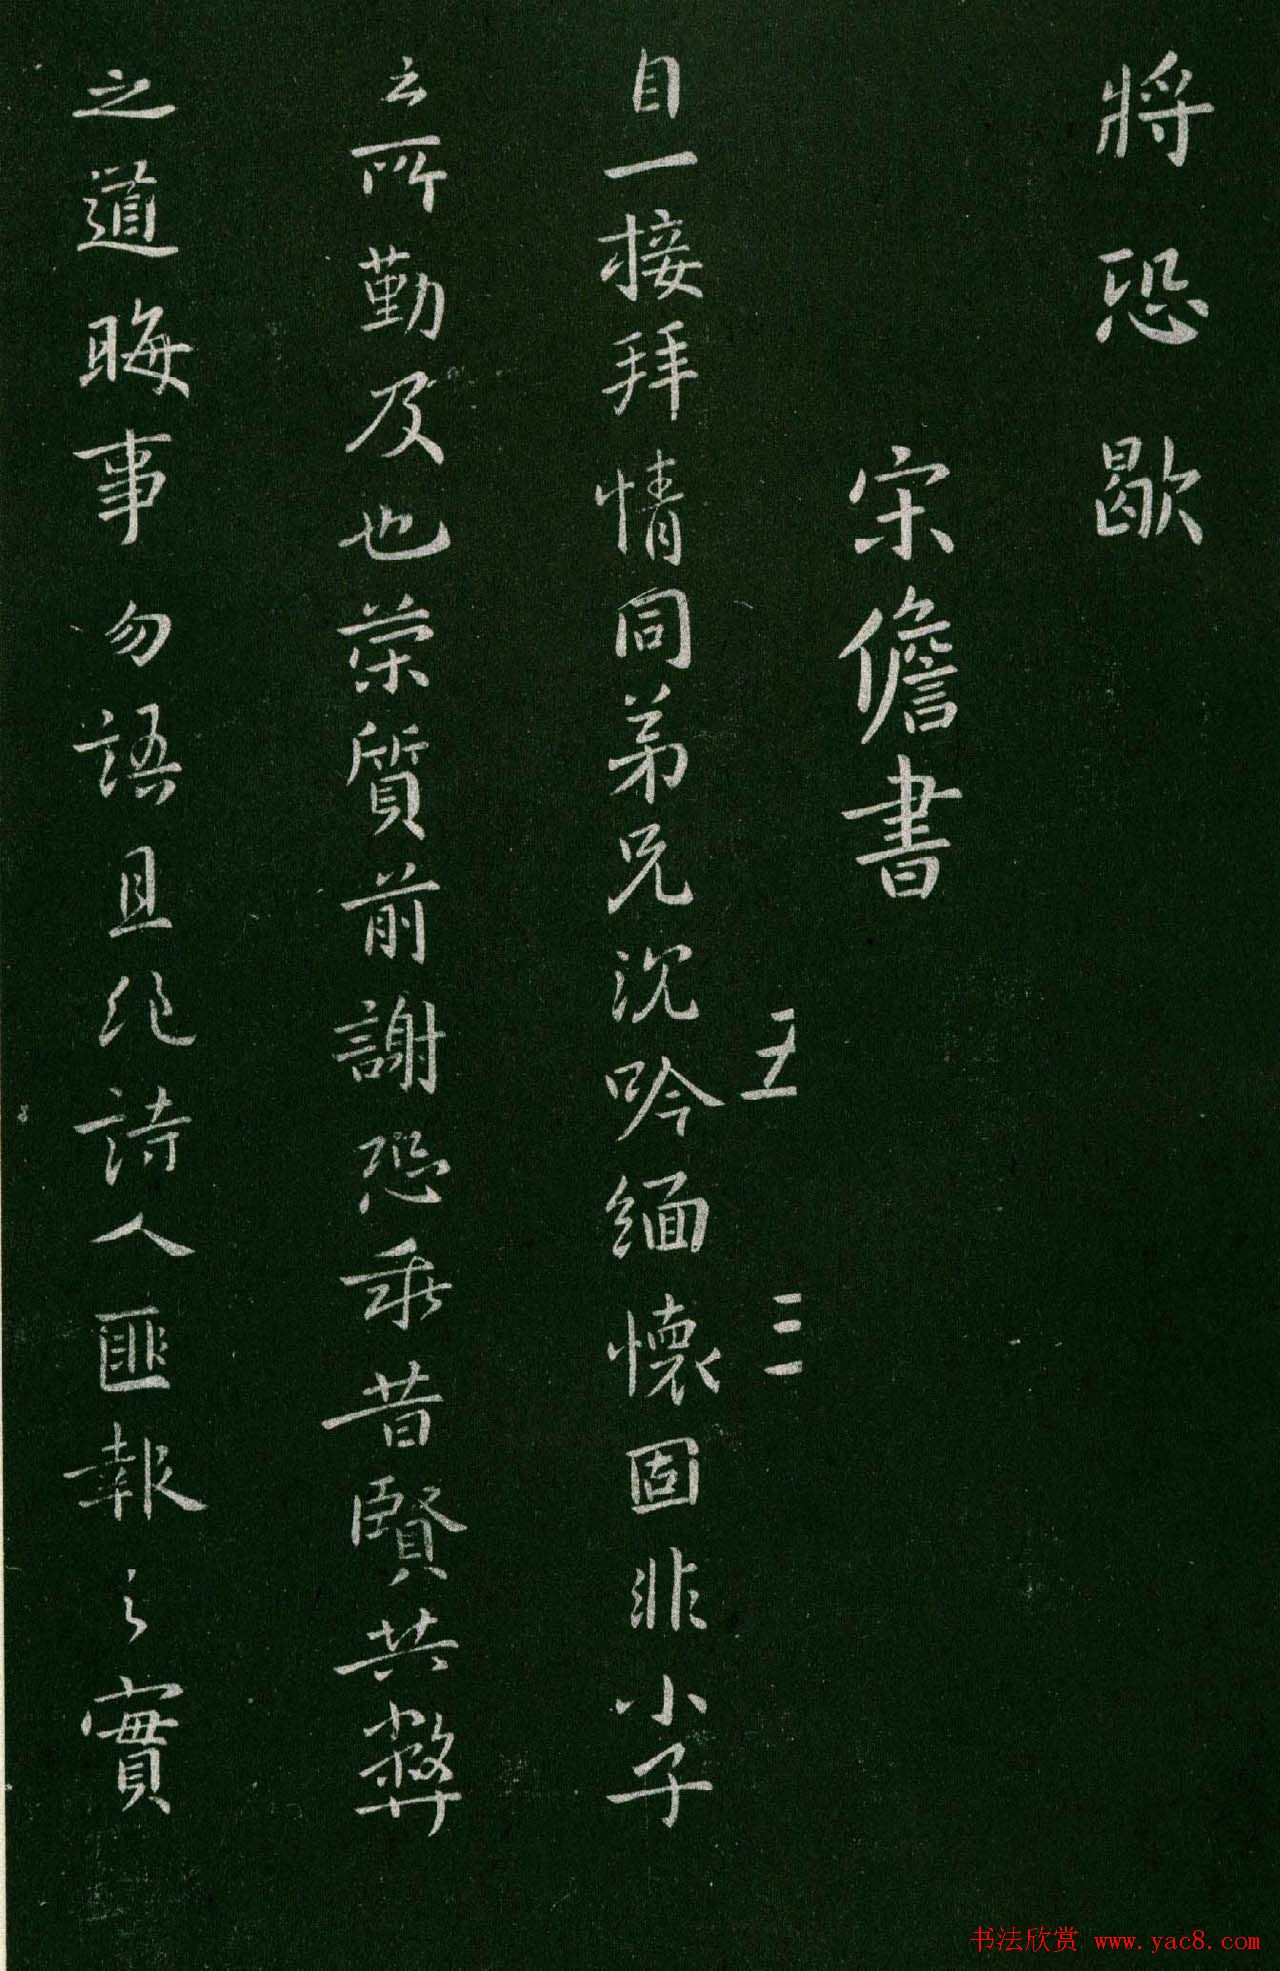 將恐歇
宋儋書
五 三
自一接拜情同弟兄沈吟緬懷固非小子
之所勤及也荣質前謝恐乖昔賢共弊
之道晦事勿語且絶詩人匪報之實
书法欣赏 www.yac8.com